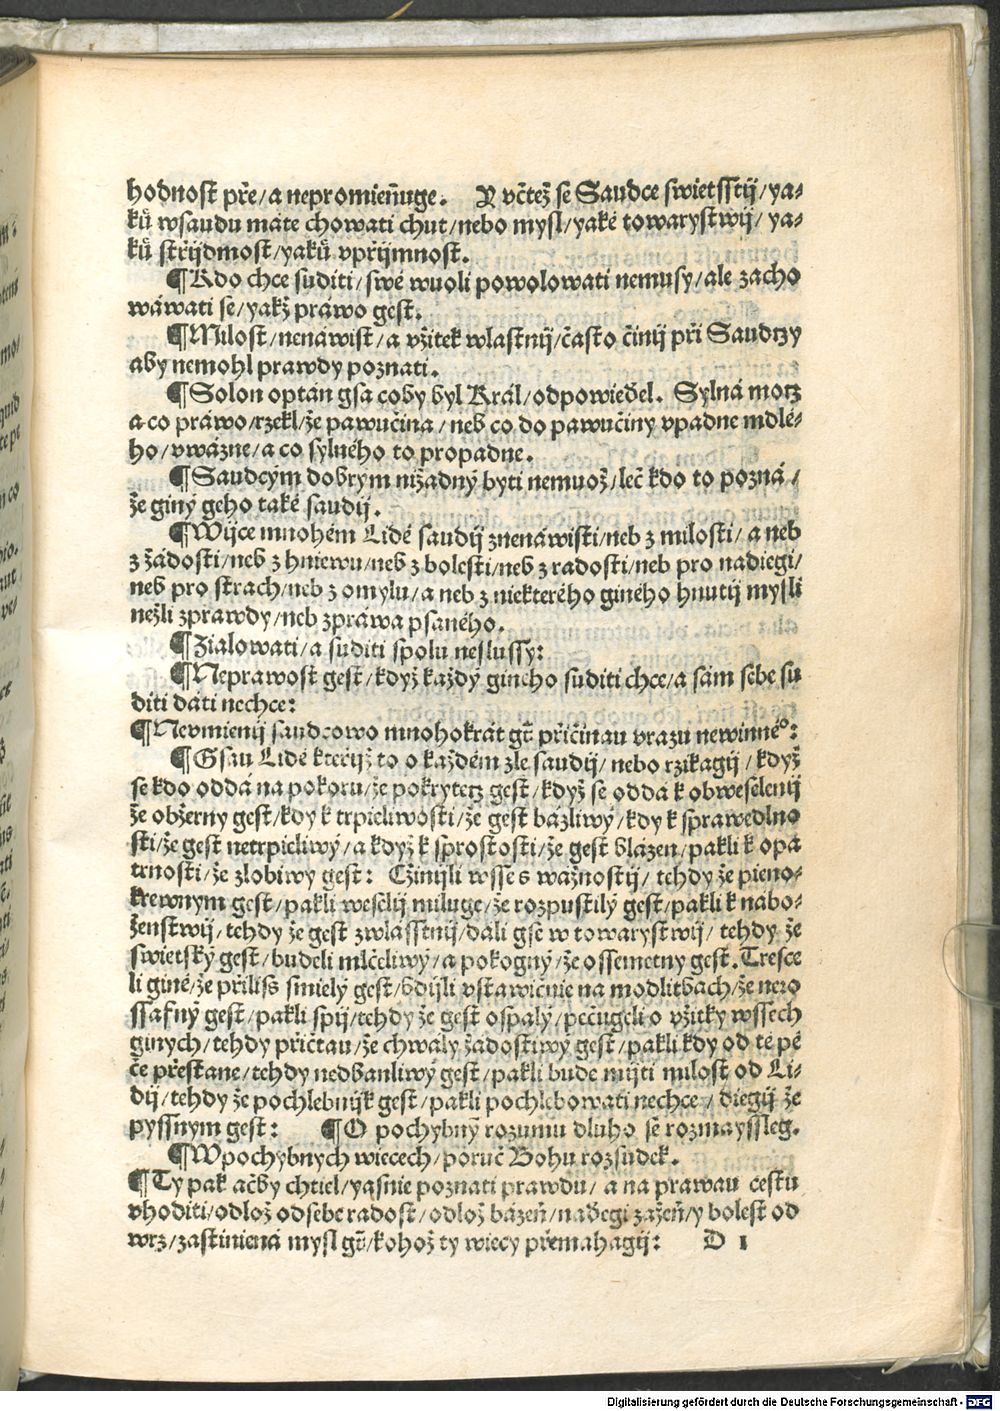 hodnost pře/a nepromieňuge. Y včtež se Saudce swietsstij/ya-
ků wsaudu máte chowati chut/nebo mysl/yaké towarystwij/ya-
ků střijdmost/yaků vpřijmnost.
¶Kdo chce suditi/swé wuoli powolowati nemusy/ale zacho
wáwati se/yakž práwo gest.
¶Milost/nenáwist/a vžitek wlastnij/často činij při Saudczy
aby nemohl prawdy poznati.
¶Solon optán gsa coby byl Král/odpowieděl. Sylná motz
a co práwo/rzekl/že pawučina/neb co do pawučiny vpadne mdlé-
ho/vwázne/a co sylného to propadne.
¶Saudcým dobrým nižádný byti nemuož/leč kdo to pozná/
že giný geho také saudij.
¶Wijce mnohém Lidé saudij znenáwisti/neb z milosti/a neb
z žádosti/neb z hniewu/neb z bolesti/neb z radosti/neb pro nadiegi/
neb pro strach/neb z omylu/a neb z niekterého giného hnutij mysli
nežli zprawdy/neb zpráwa psaného.
¶Zialowati/a suditi spolu neslussy:
¶Neprawost gest/když každý giného suditi chce/a sám sebe su
diti dáti nechce:
¶Nevmienij saudcowo mnohokrát gt̃ přičinau vrazu newinné°:
¶Gsau Lidé kteřijž to o každém zle saudij/nebo rzikagij/když
se kdo oddá na pokoru/že pokrytetz gest/když se oddá k obweselenij
že obžerny gest/kdy k trpieliwosti/že gest bázliwý/kdy k sprawedlno
sti/že gest netrpieliwý/a když k sprostosti/že gest blázen/pakli k opa
trnosti/že zlobiwy gest: Cžinijli wsse s wážnostij/tehdy že pieno-
krewnym gest/pakli weselij miluge/že rozpustilý gest/pakli k nábo-
ženstwij/tehdy že gest zwlásstnij/dáli gse w towarystwij/tehdy že
swietský gest/budeli mlčeliwý/a pokogný/že ossemetny gest. Tresce
li giné/že přiliss smielý gest/bdijli vstawičnie na modlitbách/že nero
ssafný gest/pakli spij/tehdy že gest ospalý/pečugeli o vžitky wssech
ginych/tehdy přičtau/že chwály žádostiwý gest/pakli kdy od té pé
če přestane/tehdy nedbanliwý gest/pakli bude mijti milost od Li-
dij/tehdy že pochlebnijk gest/pakli pochlebowati nechce/diegij že
pyssným gest: ¶O pochybný rozumu dluho se rozmayssleg.
¶W pochybnych wiecech/poruč Bohu rozsudek.
¶Ty pak ačby chtiel/yasnie poznati prawdu/a na prawau cestu
vhoditi/odlož odsebe radost/odlož bázeň/naděgi zažeň/y bolest od
wrz/zastiniená mysl gt̃/kohož ty wiecy přemahagij: D 1
Digitalisierung gefördert durch die Deutsche Forschungsgemeinschaft - DFG